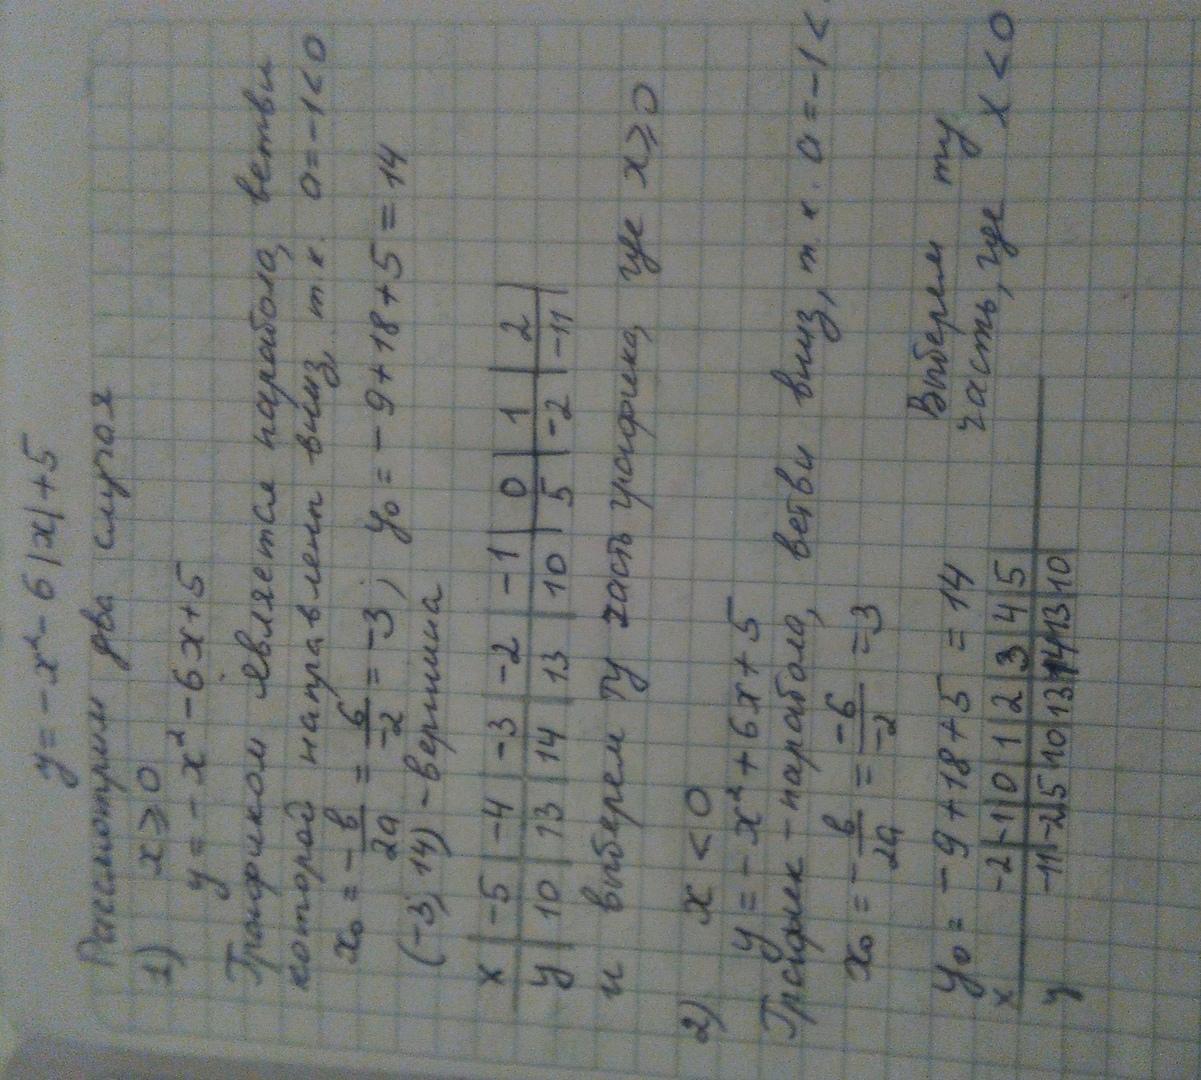 y = -x² - 6|x| + 5
Рассмотрим два случая
1) x ⩾ 0
y = -x² - 6x + 5
Графиком является парабола, ветви
которой направлены вниз, т.к. a = -1 < 0
x₀ = -b/2a = 6/-2 = -3; y₀ = -9 + 18 + 5 = 14
(-3; 14) - вершина
x | -5 | -4 | -3 | -2 | -1 | 0 | 1 | 2
y | 10 | 13 | 14 | 13 | 10 | 5 | -2 | -11
и выберем ту часть графика, где x ⩾ 0
2) x < 0
y = -x² + 6x + 5
График - парабола, ветви вниз, т.к. a = -1 <
x₀ = -b/2a = -6/-2 = -3
y₀ = -9 + 18 + 5 = 14
x | -2 | -1 | 0 | 1 | 2 | 3 | 4 | 5
y | -11 | -2 | 5 | 10 | 13 | 14 | 13 | 10
Выберем ту
часть, где x < 0